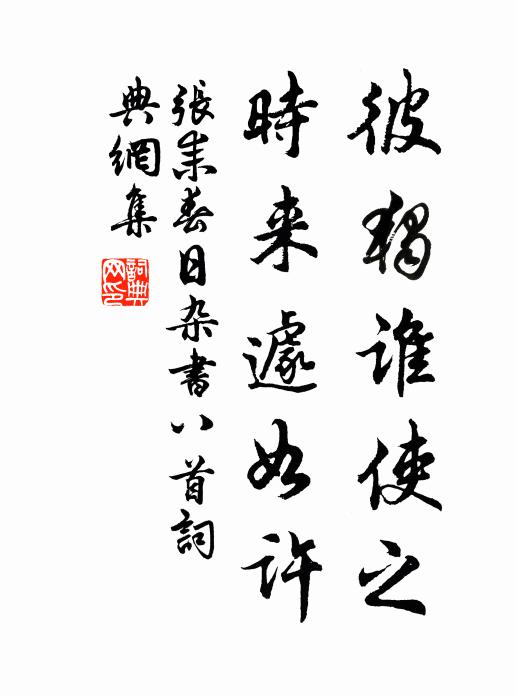 彼獨誰使之
時来遽如許
張耒春日杂書八首詞
典網集
詞典
网印